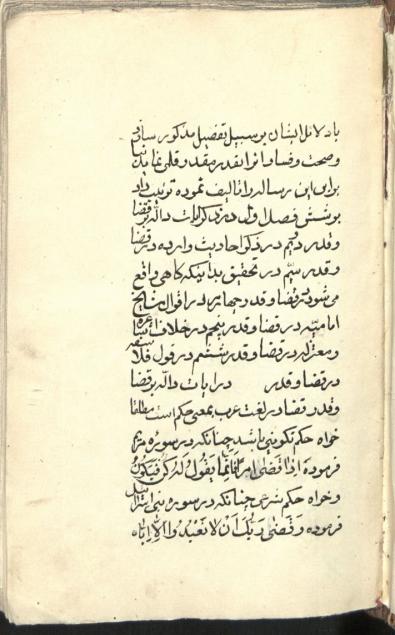 با دلائل ایشان بر سبیل تفصیل مذکور سازد
و صحت و فساد انرا بقدر مقدور قلمی نماید بنا
برای این رساله را تالیف نموده ترتیب داد
بر شش فصل اول در ذکر ایات داله بر قضا
و قدر دویم در ذکر احادیث وارده در قضا
و قدر سیم در تحقیق بدا بنیکه کاهی واقع
می شود در قضا و قدر چهارم در اقوال مشایخ
امامیه در قضا و قدر پنجم در خلاف اشاعره
و معتزله در قضا و قدر ششم در قول فلاسفه
در قضا و قدر در ایات داله بر قضا
و قدر قضا در لغت عرب بمعنی حکم است مطلقا
خواه حکم تکوینی باشد چنانکه در سوره مریم
فرموده اِذا قَضی امرًا فَاِنَّما یَقُولُ لَهُ کُن فَیَکُونُ
و خواه حکم شرعی چنانکه در سوره بنی اسرائیل
فرموده وَ قَضی رَبُّکَ اَن لا تَعبُدُوا اِلّا اِیّاه